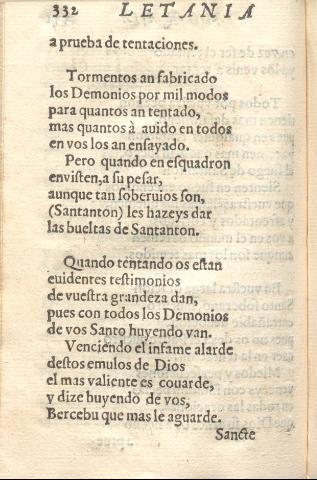 332 LETANIA
a prueba de tentaciones.
Tormentos an fabricado
los Demonios por mil modos
para quantos an tentado,
mas quantos à auido en todos
en vos los an ensayado.
Pero quando en esquadron
envisten, a su pesar,
aunque tan soberuios son,
(Santanton) les hazeys dar
las bueltas de Santanton.
Quando tentando os estan
euidentes testimonios
de vuestra grandeza dan,
pues con todos los Demonios
de vos Santo huyendo van.
Venciendo el infame alarde
destos emulos de Dios
el mas valiente es couarde,
y dize huyendo de vos,
Bercebu que mas le aguarde.
Sancte